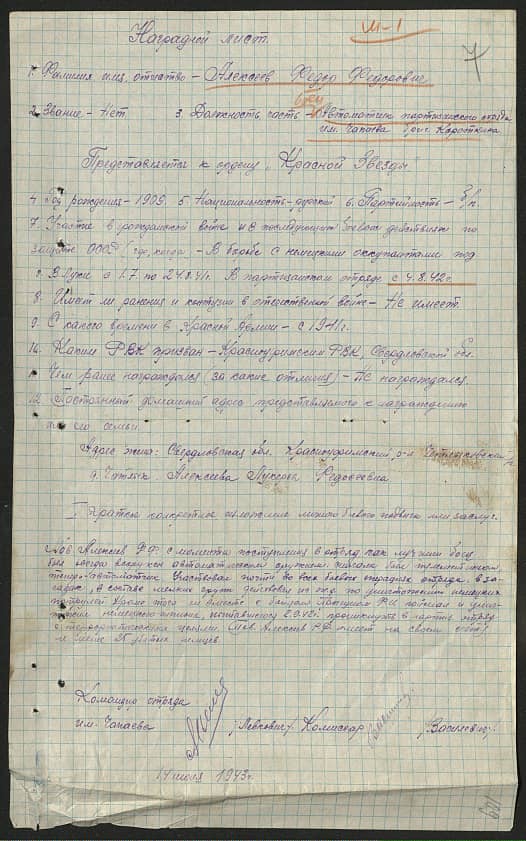 III-1
7
Наградной лист.
1. Фамилия имя, отчество - Алексеев Федор Федорович
2. Звание - Нет 3. Должность, часть - Автоматчик партизанского отряда
им. Чапаева бриг. Короткина
Представляется к ордену "Красной Звезды"
4. Год рождения - 1909. 5. Национальность - русский 6. Партийность - б/п.
7. Участие в гражданской войне и в последующих боевых действиях по
защите СССР (где, когда) - В борьбе с немецкими оккупантами под
г. Лугой с 1.7. по 24.8.41г. В партизанском отряде с 4.8.42г.
8. Имеет ли ранения и контузии в отечественной войне - Не имеет.
9. С какого времени в Красной Армии - с 1941г.
10. Каким РВК призван - Красноуфимским РВК, Свердловской обл.
11. Чем ранее награждался (за какие отличия) - Не награждался.
12. Постоянный домашний адрес представляемого к награждению
и его семьи.
Адрес жены: Свердловская обл. Красноуфимский р-н
д. Алексеева Федосеевна
I Краткое конкретное изложение личного боевого подвига или заслуг.
Тов. Алексеев Ф.Ф. с момента поступления в отряд как лучший боец
был всегда автоматическим оружием.
автоматчик. Участвовал почти во всех боевых операциях отряда, в за-
садах, в составе мелких групп на жд. по уничтожению немецких
патрулей. Кроме того вместе с поймал и унич-
тожил немецкого шпиона, в партиз. отряд
с целями. Тов. Алексеев Ф.Ф. имеет на своем
счете убитых немцев.
Командир отряда
им. Чапаева /Левкович/ Комиссар /Василевич/
14 июня 1943г.